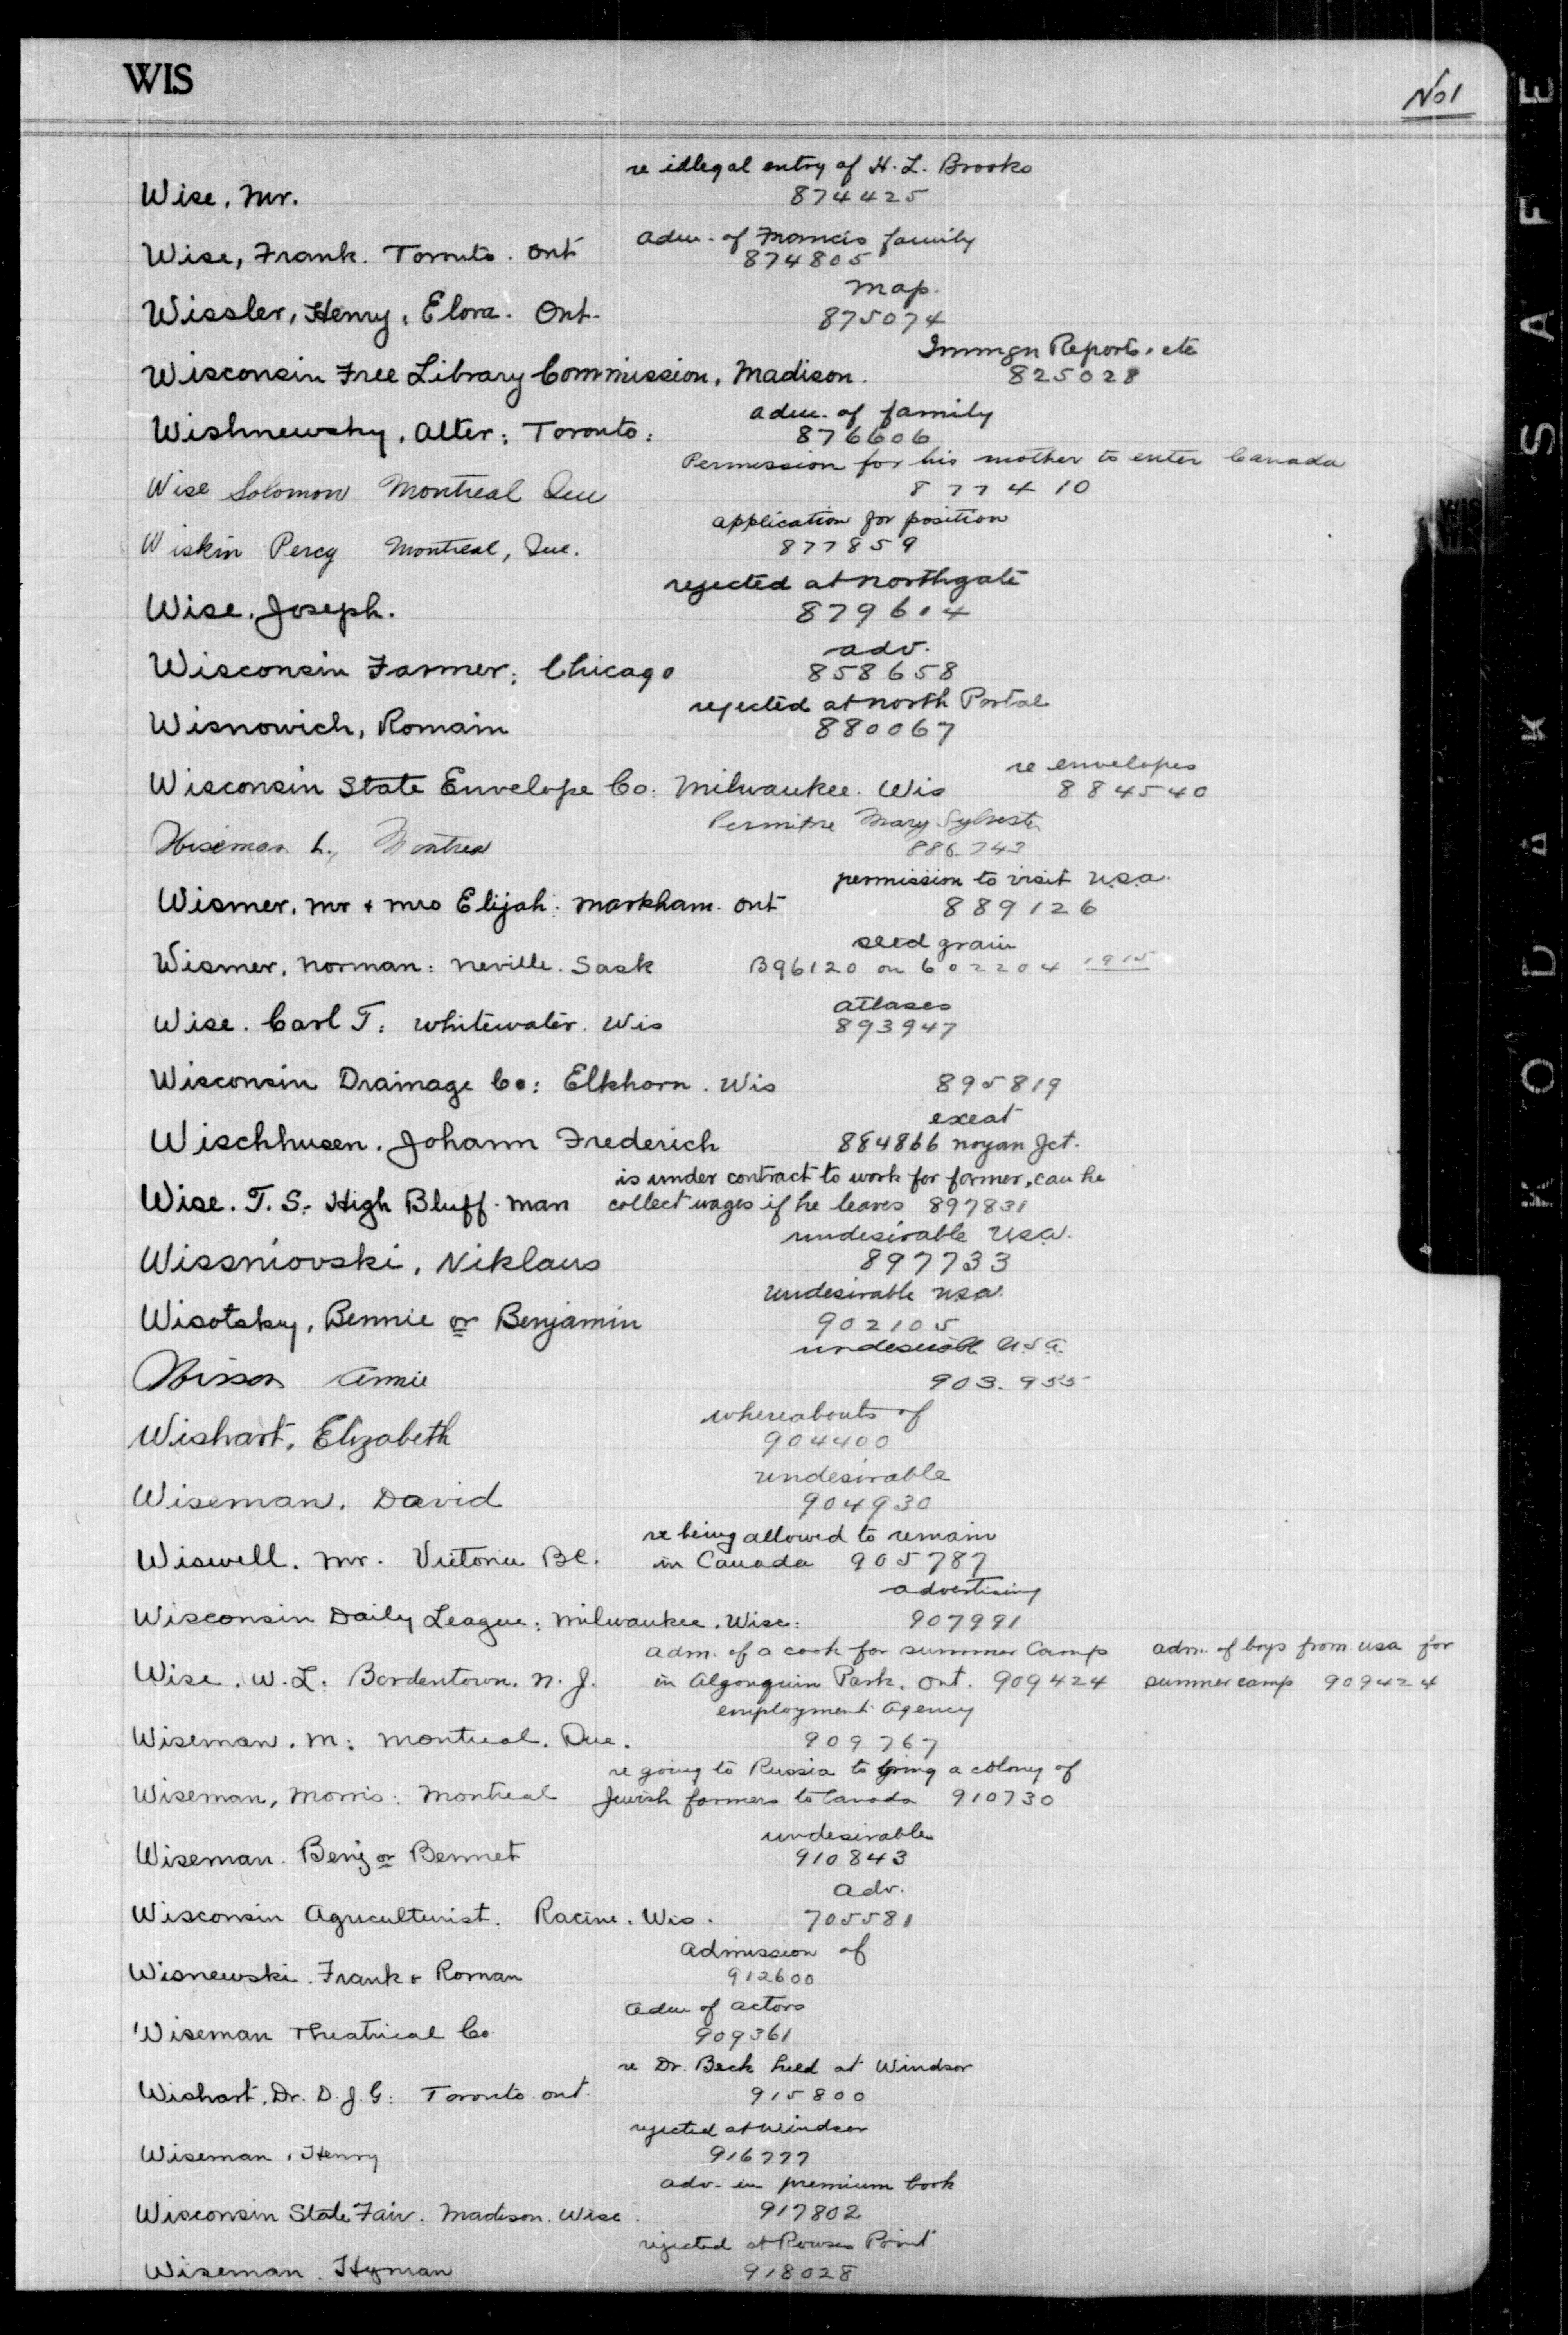 WIS
No 1
re illegal entry of H. L. Brooks
Wise, Mr. 874425
adm. of Francis family
Wise, Frank. Toronto. Ont 874805
map.
Wissler, Henry, Elora. Ont. 875074
Immgn Reports, etc
Wisconsin Free Library Commission, Madison. 825028
adm. of family
Wishnewshy, Alter; Toronto: 876606
Permission for his mother to enter Canada
Wise Solomon Montreal Que 877410
application for position
Wiskin Percy Montreal, Que. 877859
rejected at Northgate
Wise, Joseph. 879604
adv.
Wisconsin Farmer; Chicago 858658
rejected at North Portal
Wisnowich, Romain 880067
re envelopes
Wisconsin State Envelope Co: Milwaukee. Wis 884540
Mary Sylvester
Wiseman L., Montreal 886743
permission to visit U.S.A.
Wismer, Mr & Mrs Elijah: Markham. Ont 889126
seed grain
Wismer, Norman: Neville. Sask B96120 on 602204 1915
atlases
Wise. Carl T: Whitewater. Wis 893947
Wisconsin Drainage Co: Elkhorn. Wis 895819
exeat
Wischhusen. Johann Frederich 884866 Noyan Jct.
is under contract to work for farmer, can he
Wise. T. S: High Bluff. Man collect wages if he leaves 897831
undesirable U.S.A.
Wissniovski, Niklaus 897733
undesirable U.S.A.
Wisotsky, Bennie or Benjamin 902105
undesirable U.S.A.
Wisson Annie 903.955
whereabouts of
Wishart, Elizabeth 904400
undesirable
Wiseman, David 904930
re being allowed to remain
Wiswell. Mr. Victoria B.C. in Canada 905787
advertising
Wisconsin Daily League: Milwaukee. Wisc: 907991
adm. of a cook for summer Camp adm. of boys from USA for
Wise. W. L: Bordentown. N. J. in Algonquin Park. Ont. 909424 summer camp 909424
employment Agency
Wiseman. M: Montreal. Que. 909767
re going to Russia to bring a colony of
Wiseman, Morris: Montreal Jewish farmers to Canada 910730
undesirable
Wiseman. Benj or Bennet 910843
adv.
Wisconsin Agriculturist. Racine. Wis. 705581
Admission of
Wisnewski. Frank & Roman 912600
adm of actors
Wiseman Theatrical Co. 909361
re Dr. Beck held at Windsor
Wishart, Dr. D. J. G: Toronto. Ont. 915800
rejected at Windsor
Wiseman, Henry 916777
adv. in premium book
Wisconsin State Fair. Madison. Wisc. 917802
rejected at Rouses Point
Wiseman. Hyman 918028
KODAK SAFE